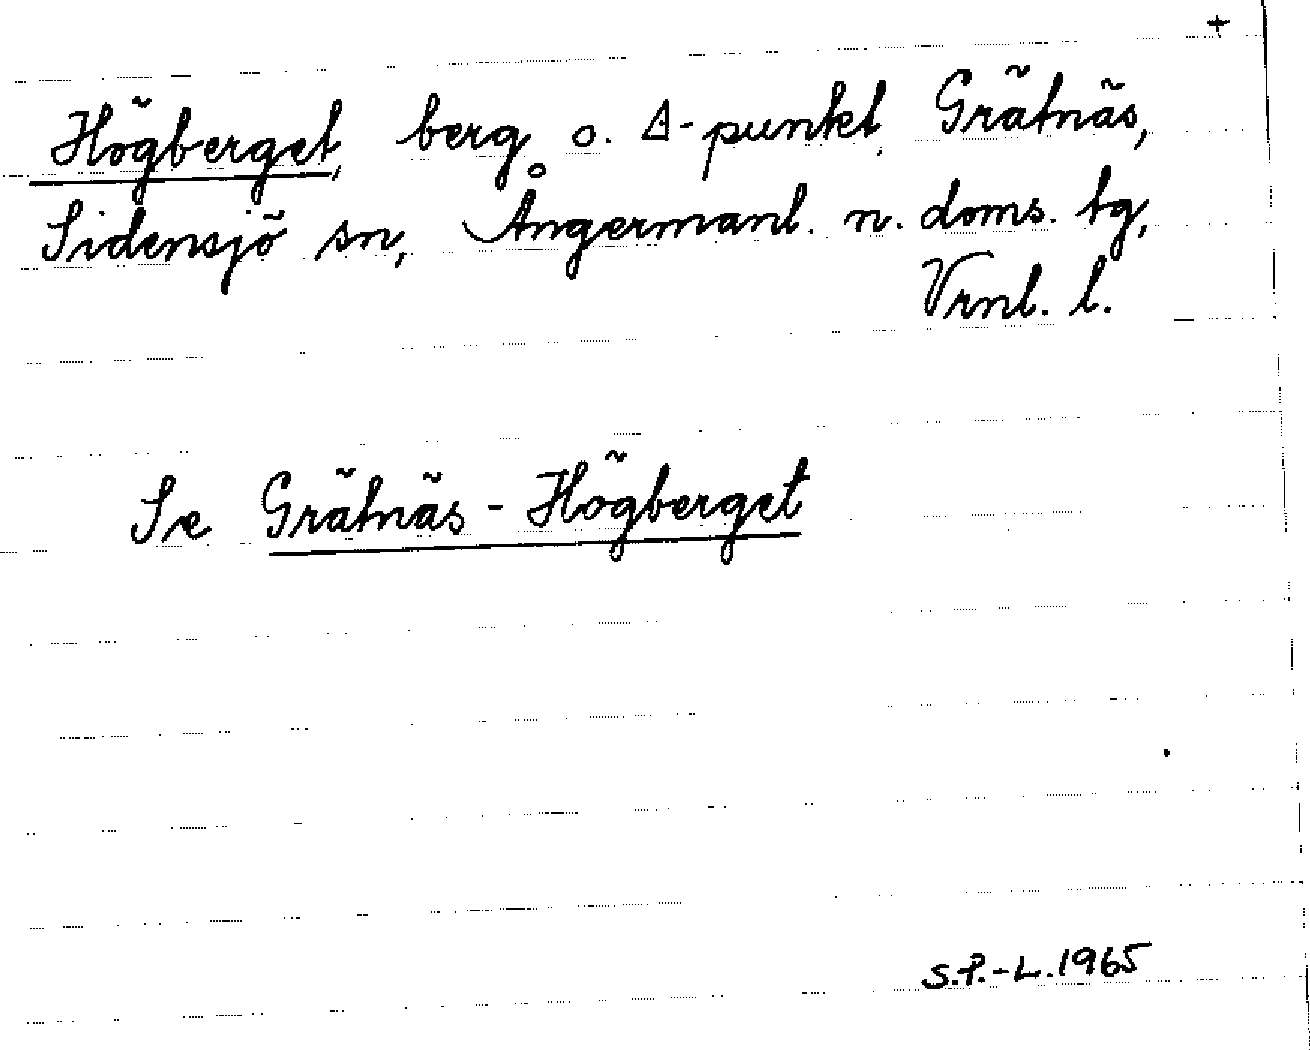 +
Högberget, berg o. Δ-punkt, Grätnäs,
Sidensjö sn, Ångermanl. n. doms. tg,
Vrnl. l.
Se Grätnäs-Högberget
S.P.-L. 1965